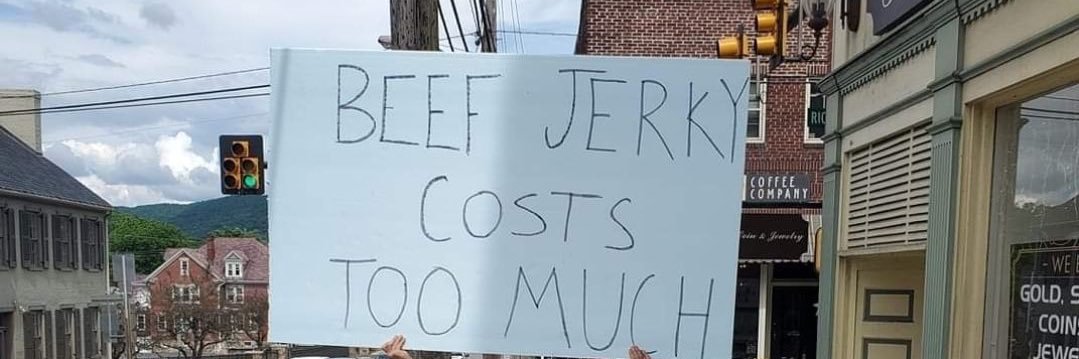 BEEF JERKY
COSTS
TOO MUCH
RIC
COFFEE
COMPANY
Coin & Jewelry
-WE B
GOLD, S
COIN
JEWE